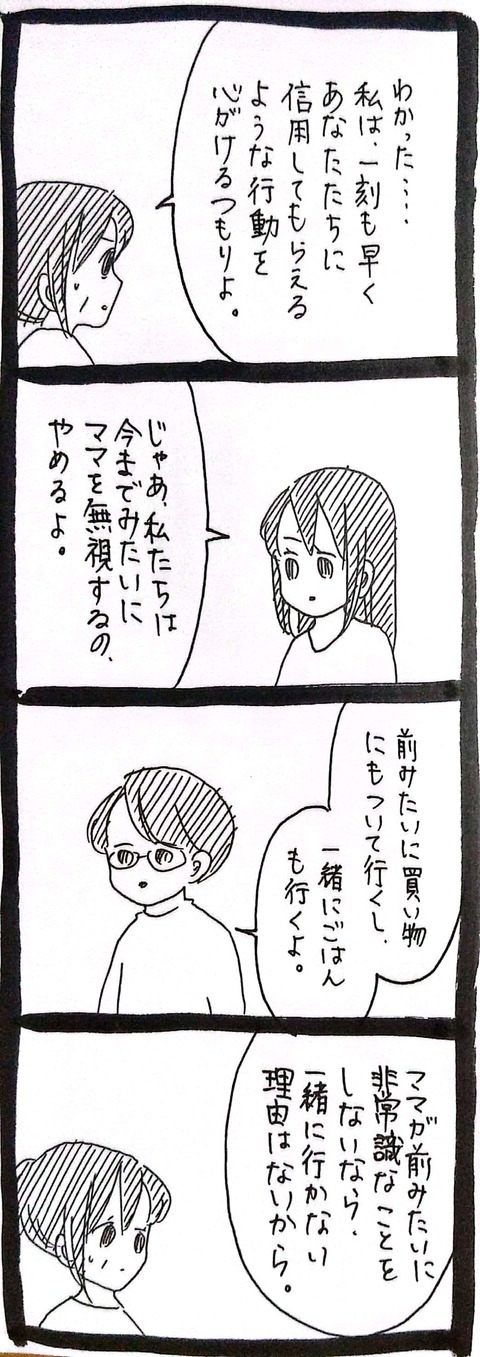 わかった…
私は、一刻も早く
あなたたちに
信用してもらえる
ような行動を
心がけるつもりよ。
じゃあ、私たちは
今までみたいに
ママを無視するの、
やめるよ。
前みたいに買い物
にもついて行くし、
一緒にごはん
も行くよ。
ママが前みたいに
非常識なことを
しないなら、
一緒に行かない
理由はないから。